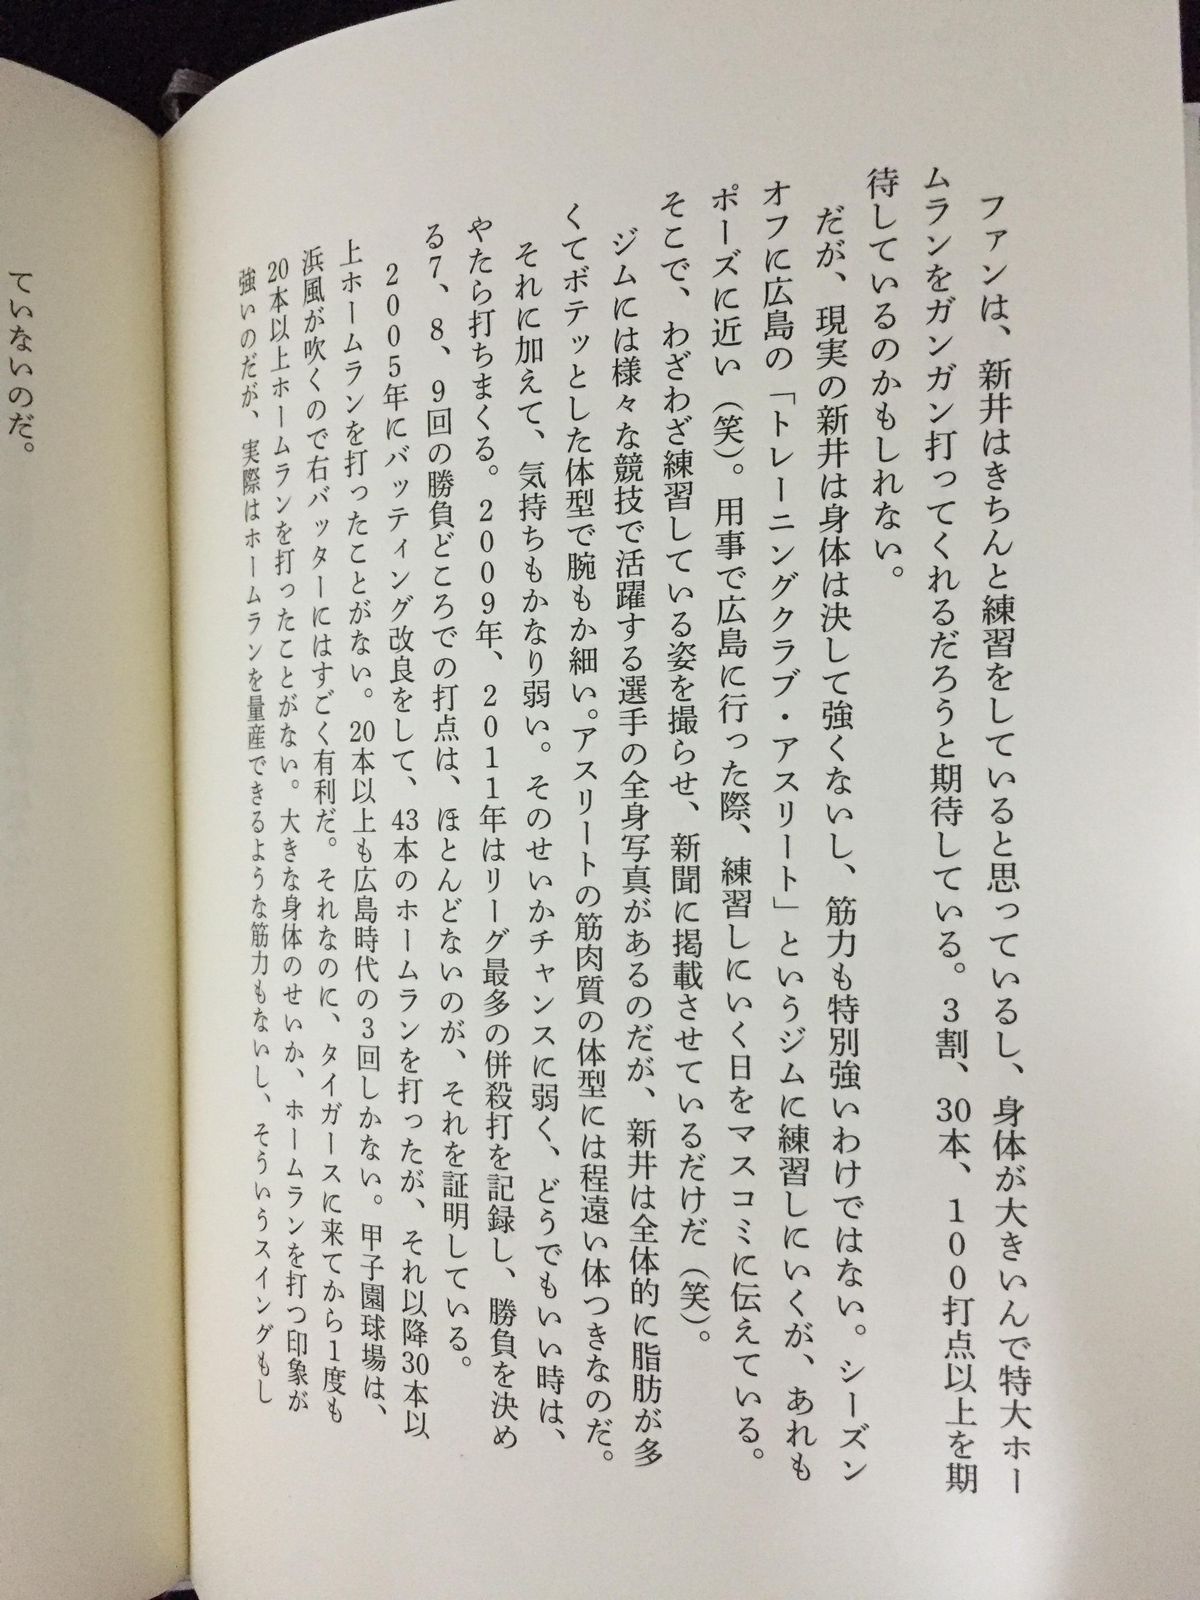 ファンは、新井はきちんと練習をしていると思っているし、身体が大きいんで特大ホー
ムランをガンガン打ってくれるだろうと期待している。3割、30本、100打点以上を期
待しているのかもしれない。
だが、現実の新井は身体は決して強くないし、筋力も特別強いわけではない。シーズン
オフに広島の「トレーニングクラブ・アスリート」というジムに練習しにいくが、あれも
ポーズに近い（笑）。用事で広島に行った際、練習しにいく日をマスコミに伝えている。
そこで、わざわざ練習している姿を撮らせ、新聞に掲載させているだけだ（笑）。
ジムには様々な競技で活躍する選手の全身写真があるのだが、新井は全体的に脂肪が多
くてボテッとした体型で腕もか細い。アスリートの筋肉質の体型には程遠い体つきなのだ。
それに加えて、気持ちもかなり弱い。そのせいかチャンスに弱く、どうでもいい時は、
やたら打ちまくる。2009年、2011年はリーグ最多の併殺打を記録し、勝負を決め
る7、8、9回の勝負どころでの打点は、ほとんどないのが、それを証明している。
2005年にバッティング改良をして、43本のホームランを打ったが、それ以降30本以
上ホームランを打ったことがない。20本以上も広島時代の3回しかない。甲子園球場は、
浜風が吹くので右バッターにはすごく有利だ。それなのに、タイガースに来てから1度も
20本以上ホームランを打ったことがない。大きな身体のせいか、ホームランを打つ印象が
強いのだが、実際はホームランを量産できるような筋力もないし、そういうスイングもし
ていないのだ。